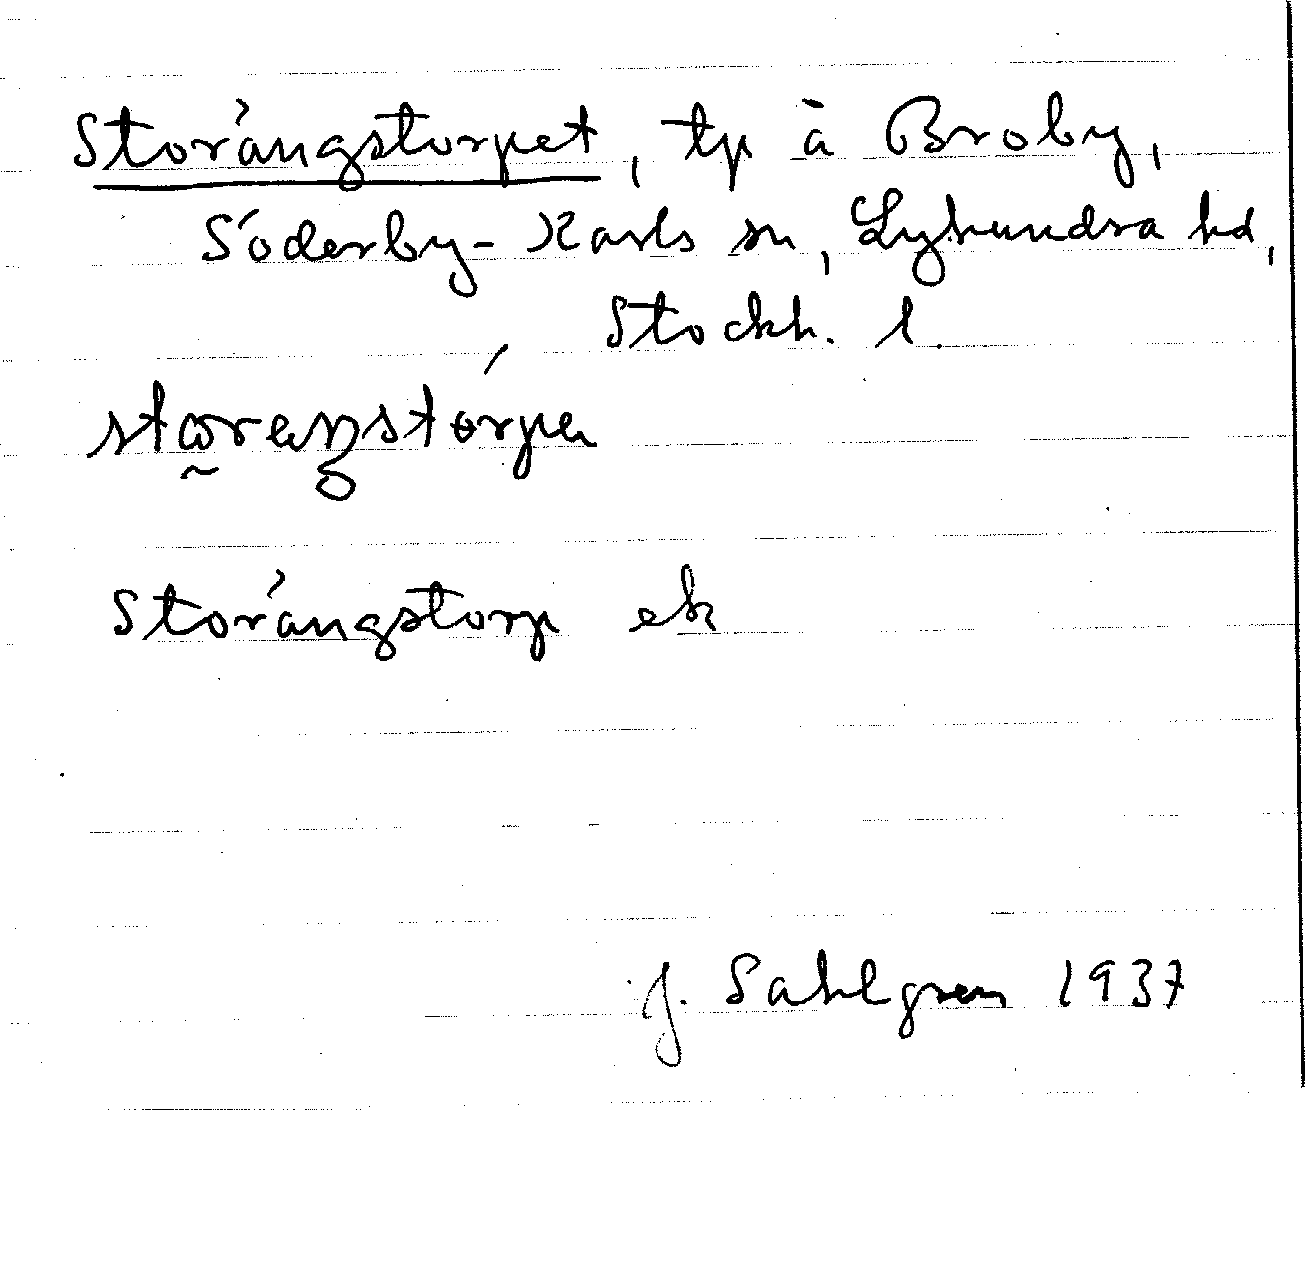 Storängstorpet, tp å Broby,
Söderby-Karls sn, Lyhundra hd,
Stockh. l.
Storängstorp ek
J. Sahlgren 1937